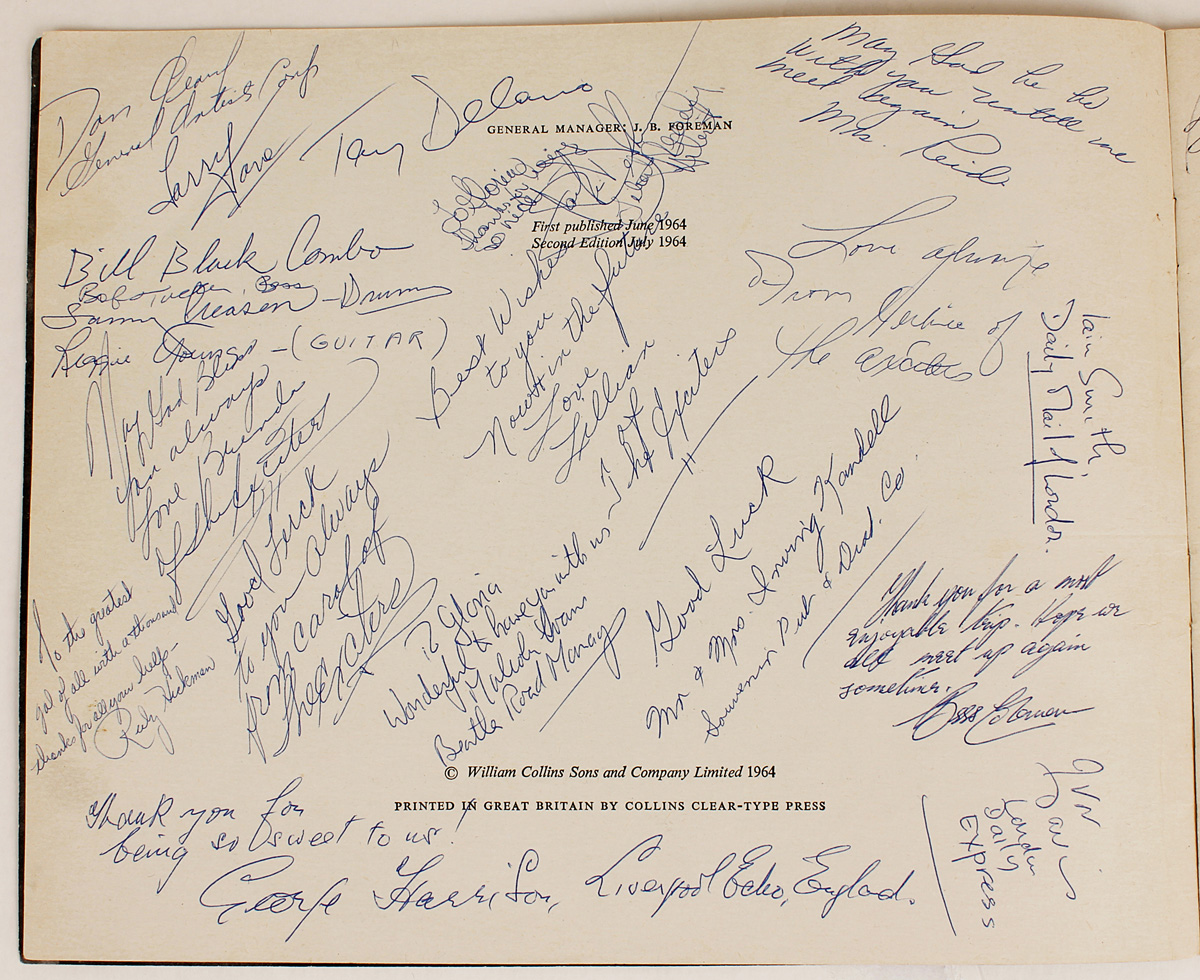 General Artists Corp
Larry
Tony Delano
GENERAL MANAGER: J. B. FOREMAN
May God be
with you untill we
meet again
Mrs. Reid
To Gloria
thanks for being
so nice
First published June 1964
Second Edition July 1964
Bill Black Combo
Bob Tucker, Bass
Sammy Creason - Drums
Reggie Young - (GUITAR)
Love always
From
of
the exciters
Iain Smith,
Daily Mail, London.
Best Wishes
to you
Now & in the future
Love
Lillian
The Exciters
May God Bless
you always
Love Brenda
of the Exciters
Good Luck
to you always
from carol of
the exciters
To Gloria
Wonderful to have you with us -
Malcolm Evans
Beatle Road Manager
Good Luck
Mr & Mrs. Irving Kandell
Souvenir Pub & Dist. Co
Thank you for a most
enjoyable trip. hope we
all meet up again
sometime.
To the greatest
gal of all with a thousand
thanks for all your help -
Rudy Hickman
© William Collins Sons and Company Limited 1964
PRINTED IN GREAT BRITAIN BY COLLINS CLEAR-TYPE PRESS
Thank you for
being so sweet to us!
George Harrison,
Liverpool Echo, England.
Ivor
Davis
London
Daily
EXPRESS